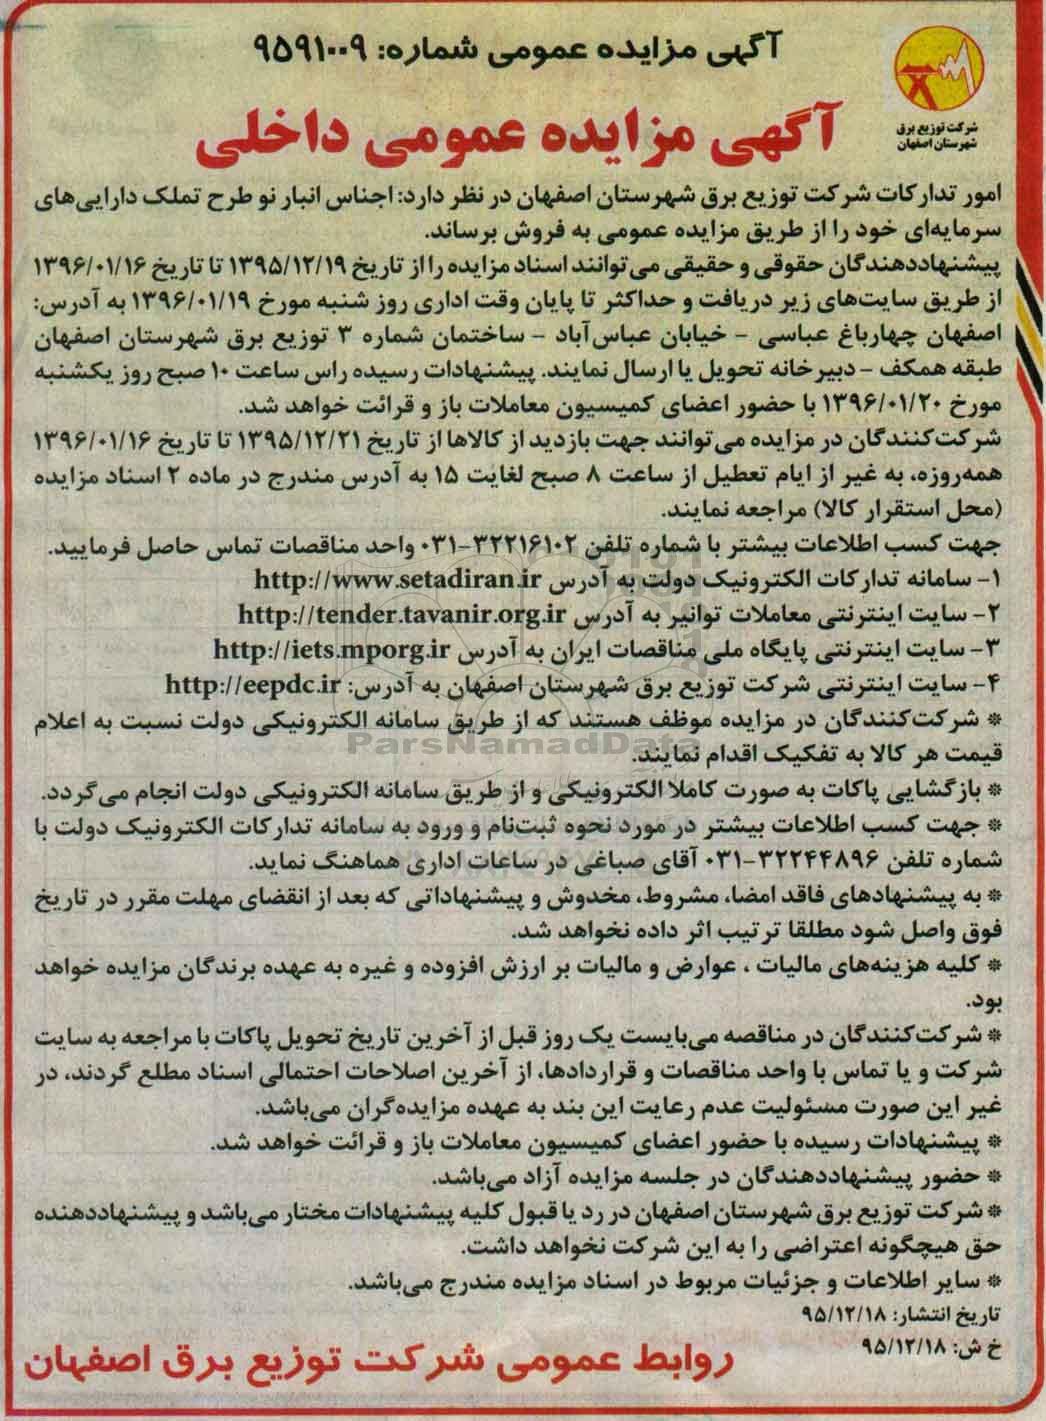 آگهی مزایده عمومی شماره: ۹۵۹۱۰۰۹
شرکت توزیع برق
شهرستان اصفهان
آگهی مزایده عمومی داخلی
امور تدارکات شرکت توزیع برق شهرستان اصفهان در نظر دارد: اجناس انبار نو طرح تملک دارایی‌های
سرمایه‌ای خود را از طریق مزایده عمومی به فروش برساند.
پیشنهاددهندگان حقوقی و حقیقی می‌توانند اسناد مزایده را از تاریخ ۱۳۹۵/۱۲/۱۹ تا تاریخ ۱۳۹۶/۰۱/۱۶
از طریق سایت‌های زیر دریافت و حداکثر تا پایان وقت اداری روز شنبه مورخ ۱۳۹۶/۰۱/۱۹ به آدرس:
اصفهان چهارباغ عباسی - خیابان عباس‌آباد - ساختمان شماره ۳ توزیع برق شهرستان اصفهان
طبقه همکف - دبیرخانه تحویل یا ارسال نمایند. پیشنهادات رسیده راس ساعت ۱۰ صبح روز یکشنبه
مورخ ۱۳۹۶/۰۱/۲۰ با حضور اعضای کمیسیون معاملات باز و قرائت خواهد شد.
شرکت‌کنندگان در مزایده می‌توانند جهت بازدید از کالاها از تاریخ ۱۳۹۵/۱۲/۲۱ تا تاریخ ۱۳۹۶/۰۱/۱۶
همه‌روزه، به غیر از ایام تعطیل از ساعت ۸ صبح لغایت ۱۵ به آدرس مندرج در ماده ۲ اسناد مزایده
(محل استقرار کالا) مراجعه نمایند.
جهت کسب اطلاعات بیشتر با شماره تلفن ۳۲۲۱۶۱۰۲-۰۳۱ واحد مناقصات تماس حاصل فرمایید.
۱- سامانه تدارکات الکترونیک دولت به آدرس http://www.setadiran.ir
۲- سایت اینترنتی معاملات توانیر به آدرس http://tender.tavanir.org.ir
۳- سایت اینترنتی پایگاه ملی مناقصات ایران به آدرس http://iets.mporg.ir
۴- سایت اینترنتی شرکت توزیع برق شهرستان اصفهان به آدرس: http://eepdc.ir
* شرکت‌کنندگان در مزایده موظف هستند که از طریق سامانه الکترونیکی دولت نسبت به اعلام
قیمت هر کالا به تفکیک اقدام نمایند.
ParsNamadData
* بازگشایی پاکات به صورت کاملا الکترونیکی و از طریق سامانه الکترونیکی دولت انجام می‌گردد.
* جهت کسب اطلاعات بیشتر در مورد نحوه ثبت‌نام و ورود به سامانه تدارکات الکترونیک دولت با
شماره تلفن ۳۲۲۴۴۸۹۶-۰۳۱ آقای صباغی در ساعات اداری هماهنگ نماید.
* به پیشنهادهای فاقد امضا، مشروط، مخدوش و پیشنهاداتی که بعد از انقضای مهلت مقرر در تاریخ
فوق واصل شود مطلقا ترتیب اثر داده نخواهد شد.
* کلیه هزینه‌های مالیات ، عوارض و مالیات بر ارزش افزوده و غیره به عهده برندگان مزایده خواهد
بود.
* شرکت‌کنندگان در مناقصه می‌بایست یک روز قبل از آخرین تاریخ تحویل پاکات با مراجعه به سایت
شرکت و یا تماس با واحد مناقصات و قراردادها، از آخرین اصلاحات احتمالی اسناد مطلع گردند، در
غیر این صورت مسئولیت عدم رعایت این بند به عهده مزایده‌گران می‌باشد.
* پیشنهادات رسیده با حضور اعضای کمیسیون معاملات باز و قرائت خواهد شد.
* حضور پیشنهاددهندگان در جلسه مزایده آزاد می‌باشد.
* شرکت توزیع برق شهرستان اصفهان در رد یا قبول کلیه پیشنهادات مختار می‌باشد و پیشنهاددهنده
حق هیچگونه اعتراضی را به این شرکت نخواهد داشت.
* سایر اطلاعات و جزئیات مربوط در اسناد مزایده مندرج می‌باشد.
تاریخ انتشار: ۹۵/۱۲/۱۸
خ ش: ۹۵/۱۲/۱۸
روابط عمومی شرکت توزیع برق اصفهان